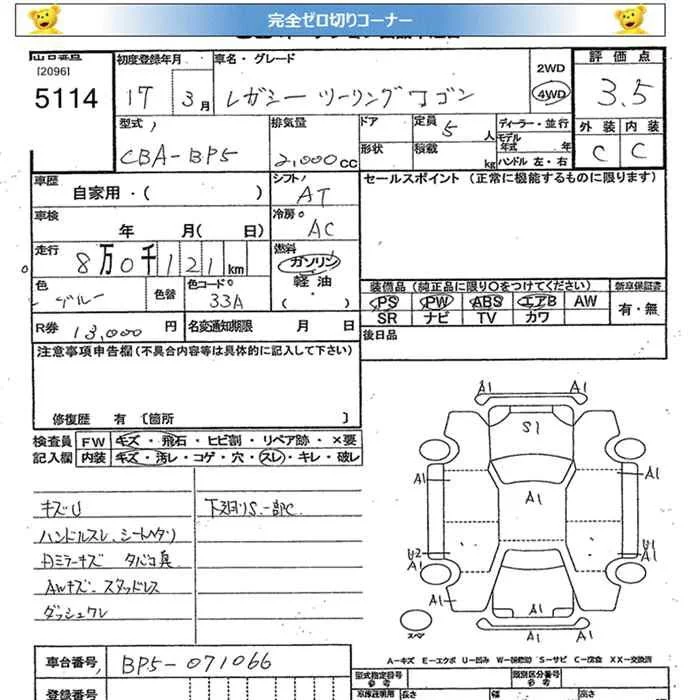 完全ゼロ切りコーナー
[2096]
5114
初度登録年月
17 3月
車名・グレード
レガシー ツーリングワゴン
2WD
4WD
評価点
3.5
外装 内装
C C
型式
CBA-BP5
排気量
2,000cc
ドア
形状
定員 5人
積載 kg
ディーラー・並行
モデル年式 年
ハンドル 左・右
車歴
自家用・( )
シフト
AT
セールスポイント (正常に機能するものに限ります)
車検
年 月( 日)
冷房
AC
走行
8万0千121km
燃料
ガソリン
軽油
( ・ )
色
ブルー
色替
色コード
33A
装備品 (純正品に限り○をつけてください)
新車保証書
PS PW ABS エアB AW
有・無
SR ナビ TV カワ
R券 13,000円
名変通知期限 月 日
後日品
注意事項申告欄(不具合内容等は具体的に記入して下さい)
修復歴 有 〔箇所 〕
検査員記入欄
FW キズ・飛石・ヒビ割・リペア跡・×要
内装 キズ・汚レ・コゲ・穴・スレ・キレ・破レ
キズU
下廻りS.一部C
ハンドルスレ、シートヘタリ
タバコ臭
AWキズ.スタッドレス
A1 A1
S1
A1 A1
A1
U2 U1
A1
A1 A1 A1
スペア
A-キズ E-エクボ U-凹み W-補修跡 S-サビ C-腐食 XX-交換済
車台番号
BP5-071066
登録番号
型式指定番号
参考
類別区分番号
参考
長さ
幅
高さ